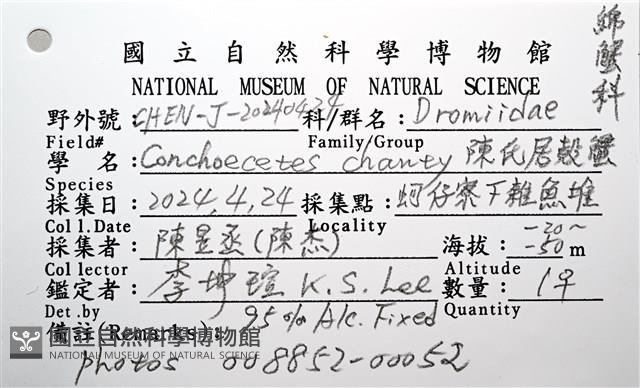 綿蟹科
國立自然科學博物館
NATIONAL MUSEUM OF NATURAL SCIENCE
野外號：CHEN-J-20240424 科/群名：Dromiidae
Field# Family/Group
學 名：Conchoecetes chanty 陳氏居殼蟹
Species
採集日：2024,4,24 採集點：蚵仔寮下雜魚堆
Coll.Date Locality
採集者：陳昱丞(陳杰) 海拔：-20~-50m
Collector Altitude
鑑定者：李坤瑄 K.S. Lee 數量：1♀
Det.by Quantity
備註(Remarks)：95% Alc. Fixed
國立自然科學博物館
NATIONAL MUSEUM OF NATURAL SCIENCE
photos 008852-00052